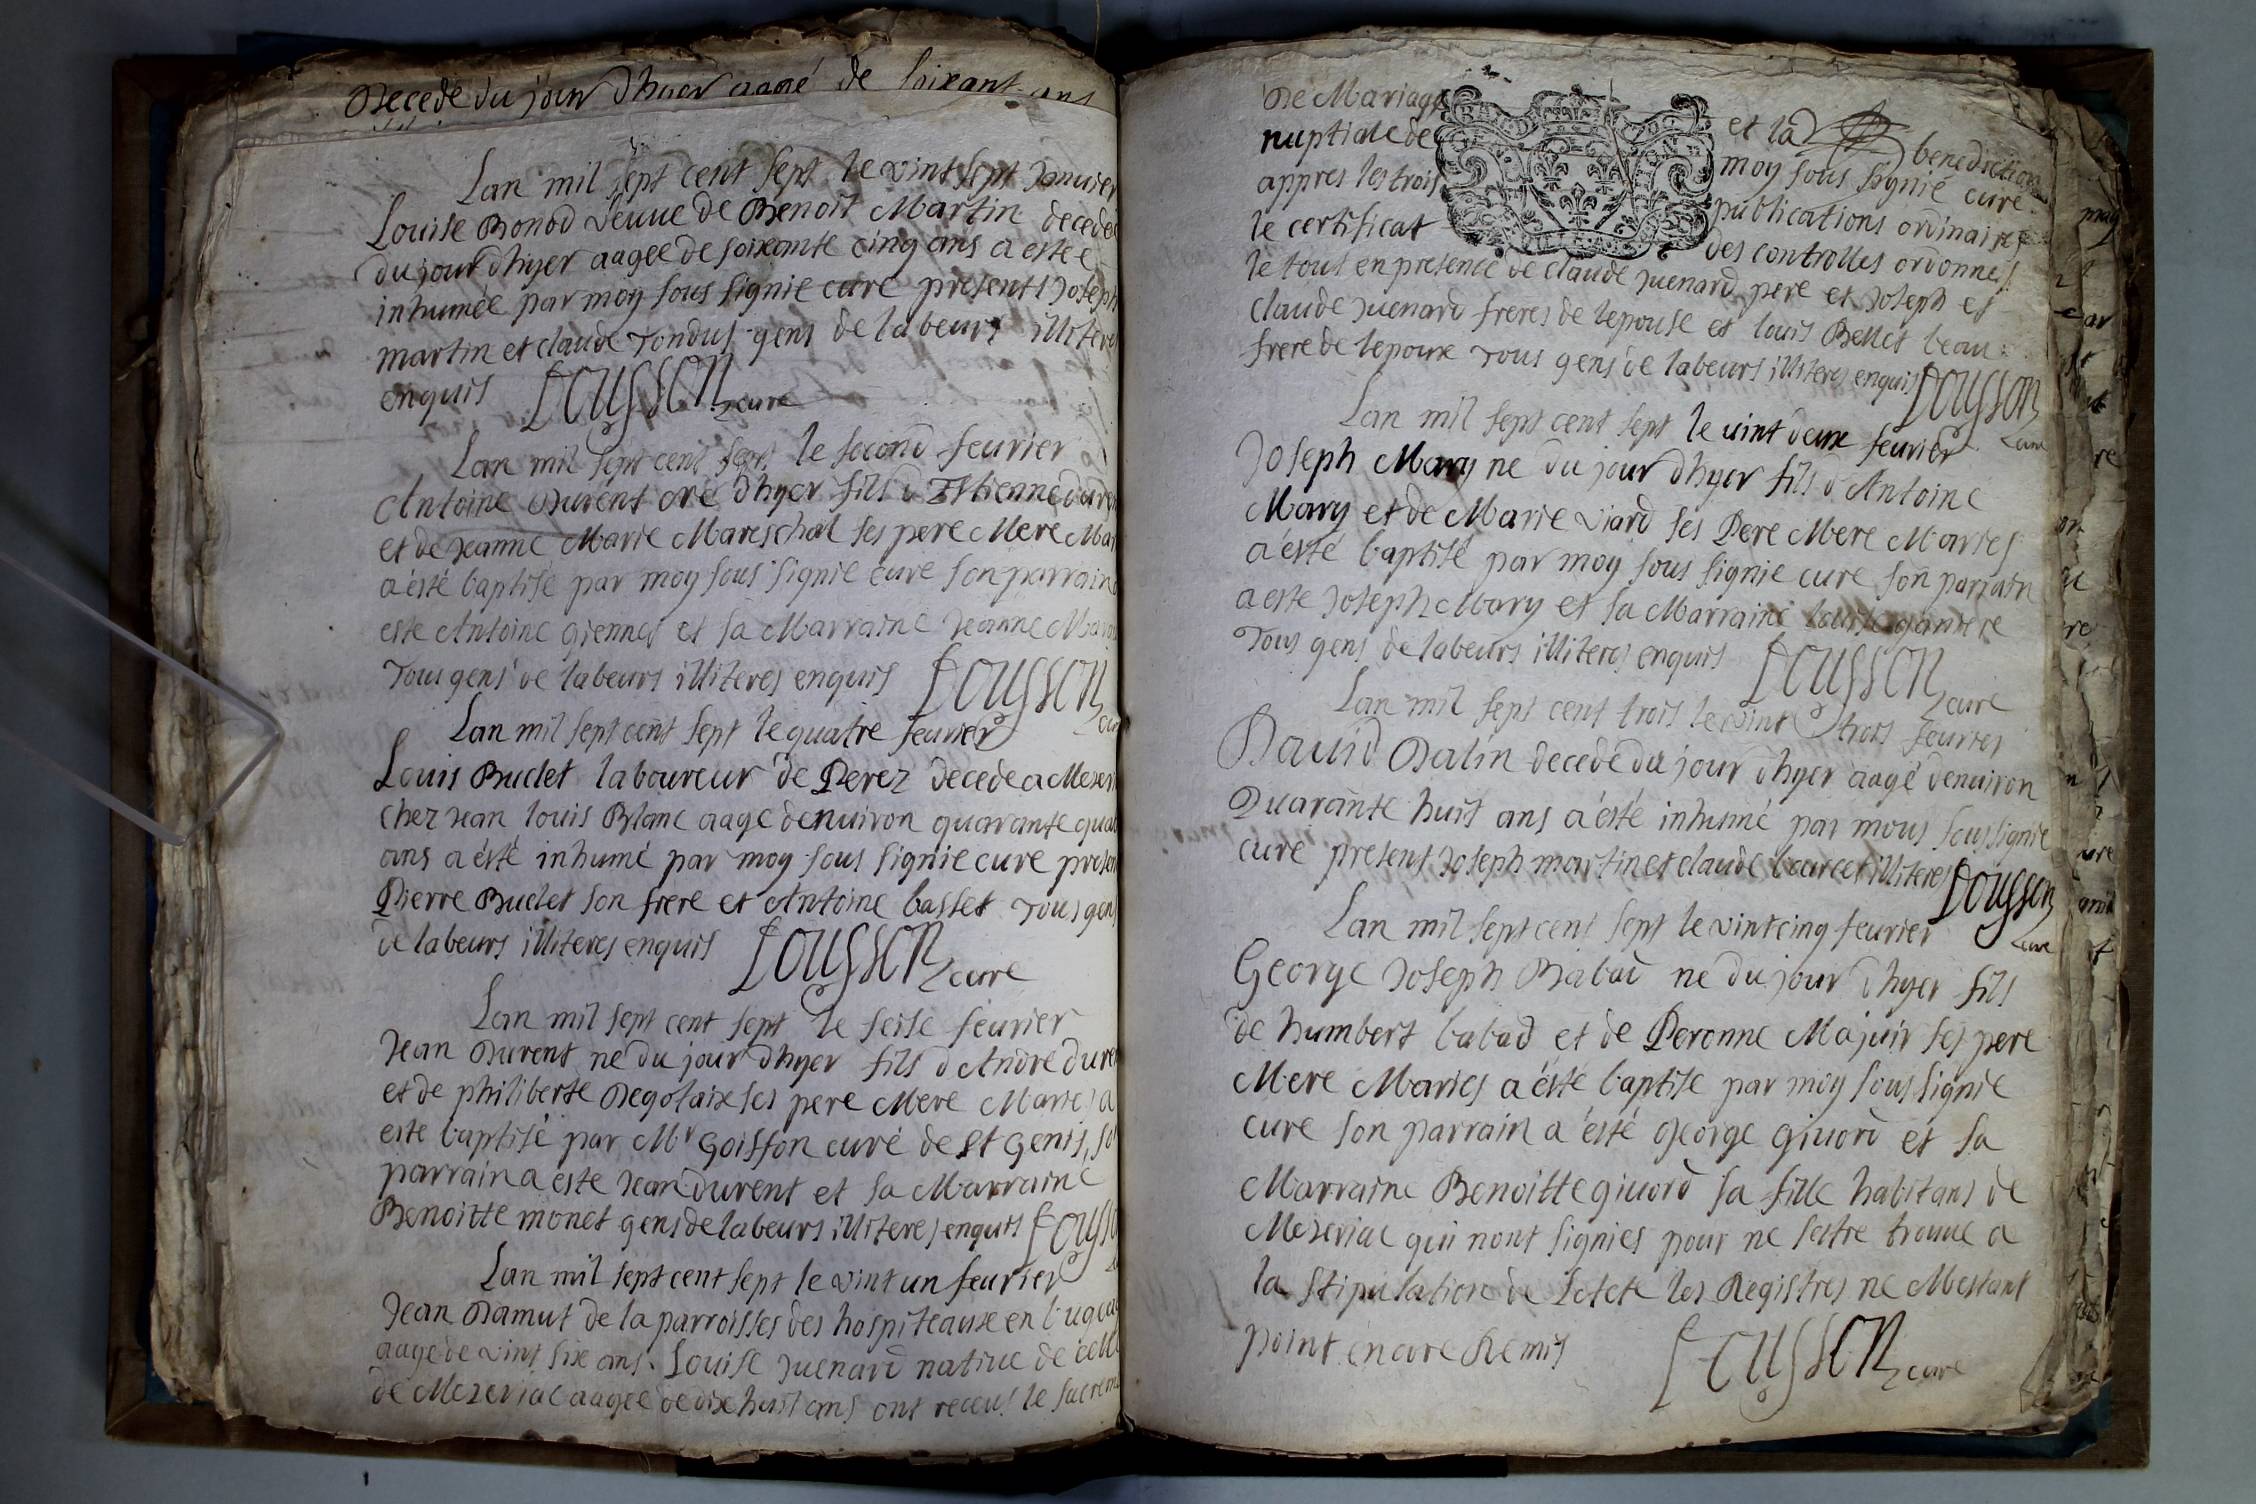 Decede du jour dhyer aagé de soixant ans
Lan mil sept cent sept le vint sept Janvier
Louise Bonod veuue de Benoit Martin decedee
du jour dhyer aagee de soixante cinq ans a esté
inhumée par moy sous signie curé presents Joseph
martin et claude Tondus gens de labeurs illiteres
enquis Fousson curé
Lan mil sept cent sept le second feurier
Antoine Durent né dhyer fils d Estienne duren
et de Jeanne Marie Mareschal ses pere Mere Mar
a ésté baptise par moy sous signie curé son parrain
este Antoine giennet et sa Marraine Jeanne
Tous gens de labeurs illiteres enquis Fousson
cur
Lan mil sept cent sept le quatre feurier
Louis Buclet laboureur de Perez decede a Mezeri
chez Jean louis Blanc aage denuiron quarante qua
ans a ésté inhumé par moy sous signie curé presen
Pierre Buclet son frere et Antoine basset Tous gen
de labeurs illiteres enquis Fousson curé
Lan mil sept cent sept le seise feurier
Jean Durent ne du jour dhyer fils d André dure
et de philiberte Degolaix ses pere Mere Maries a
este baptisé par Mr Goisson curé de St Genis, so
parrain a este Jean durent et sa Marraine
Benoitte monet gens de labeurs illiteres enquis Fousso
Lan mil sept cent sept le vint un feurier
Jean Damut de la parroisses des hospiteaux en bugea
aage de vint six ans. Louise Juenard natiue de celle
de Mezeriac aagee de dix huit ans ont receu le sacreme
De Mariage et la benediction
nuptiale de moy sous signié curé
appres les trois publications ordinaires
le certificat des controlles ordonnes
le tout en presence de claude Juenard pere et Joseph et
claude Juenard freres de lepouse et louis Bellet beau
frere de lepoux Tous gens de labeurs illiteres enquis Fousson
Lan mil sept cent sept le vint deux feurier curé
Joseph Mary ne du jour dhyer fils d Antoine
Mary et de Marie Viard ses Pere Mere Maries
a ésté baptisé par moy sous signie curé son parrain
a este Joseph Mary et sa Marraine
Tous gens de labeurs illiteres enquis Fousson
curé
Lan mil sept cent trois le vint trois feurier
Dauid Dalin decede du jour dhyer aagé denuiron
Quarante huit ans a ésté inhumé par mous sous signie
curé present Joseph martin et claude illiteres Fousson
Lan mil sept cent sept le vint cinq feurier curé
George Joseph Babad ne du jour dhyer fils
de humbert babad et de Peronne Majuir ses pere
Mere Maries a ésté baptise par moy sous signie
curé son parrain a ésté George giuord et sa
Marraine Benoitte giuord sa fille habitans de
Mezeriac qui nont signies pour ne sestre trouue a
la stipulation de les Registres ne Mestant
point encore Remis Fousson curé